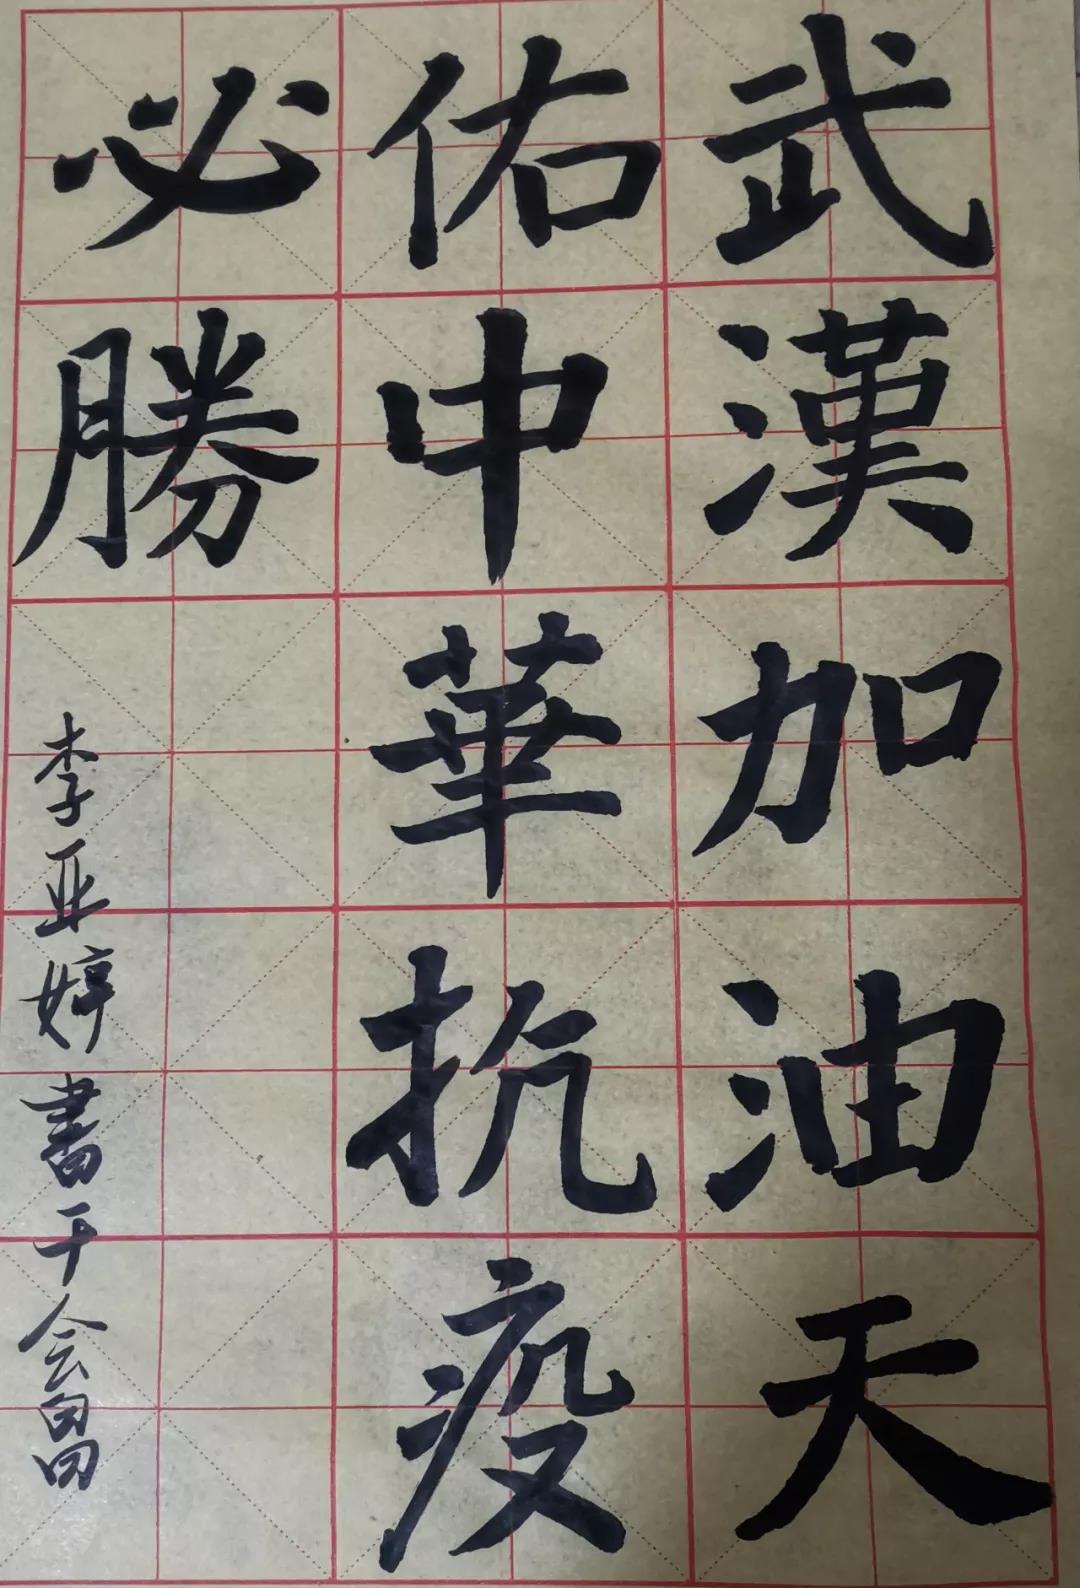 武漢加油天
佑中華抗疫
必勝
李亚婷書于会昌